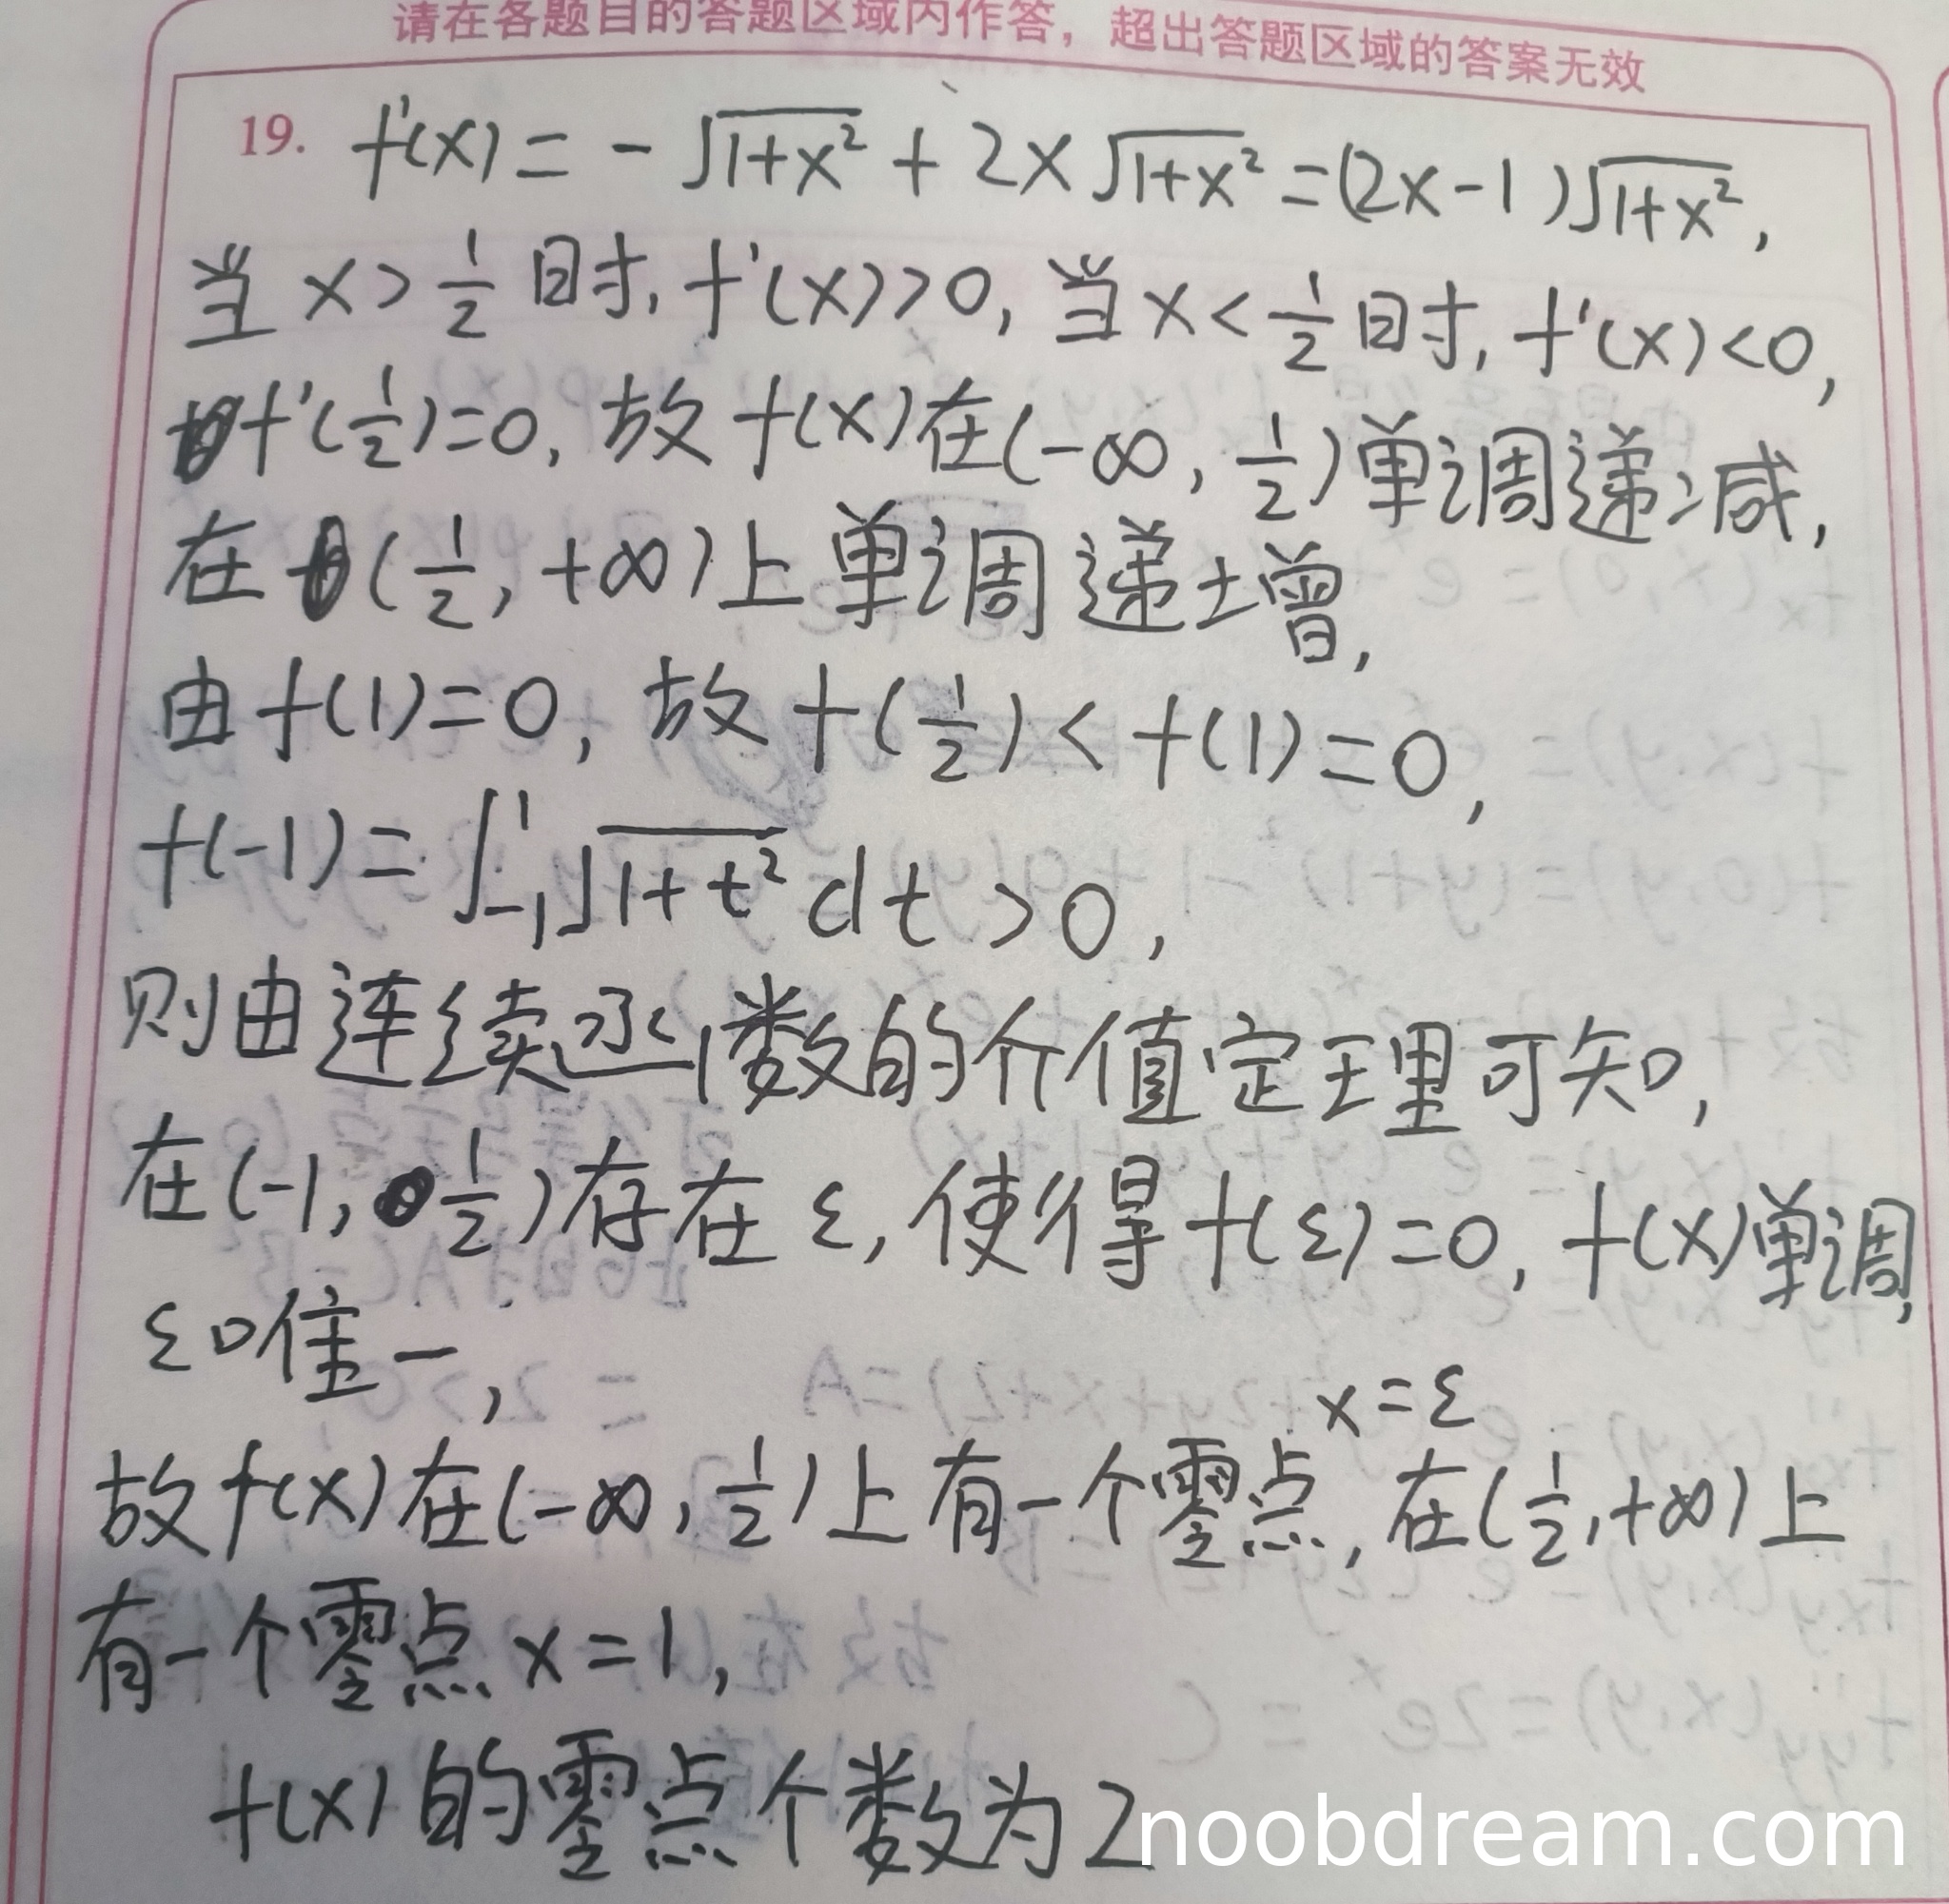 请在各题目的答题区域内作答，超出答题区域的答案无效
19. f'(x) = -√(1+x²) + 2x√(1+x²) = (2x-1)√(1+x²),
当 x > 1/2 时, f'(x)>0, 当 x < 1/2 时, f'(x)<0,
f'(1/2)=0, 故 f(x)在(-∞, 1/2)单调递减,
在 (1/2, +∞)上单调递增,
由 f(1)=0, 故 f(1/2) < f(1) = 0,
f(-1) = ∫₋₁¹ √(1+t²) dt > 0,
则由连续函数的介值定理可知,
在(-1, 1/2)存在 ε, 使得 f(ε)=0, f(x)单调,
ε唯一,
x = ε
故 f(x)在(-∞, 1/2)上有一个零点, 在(1/2, +∞)上
有一个零点 x = 1,
f(x)的零点个数为 2
noobdream.com